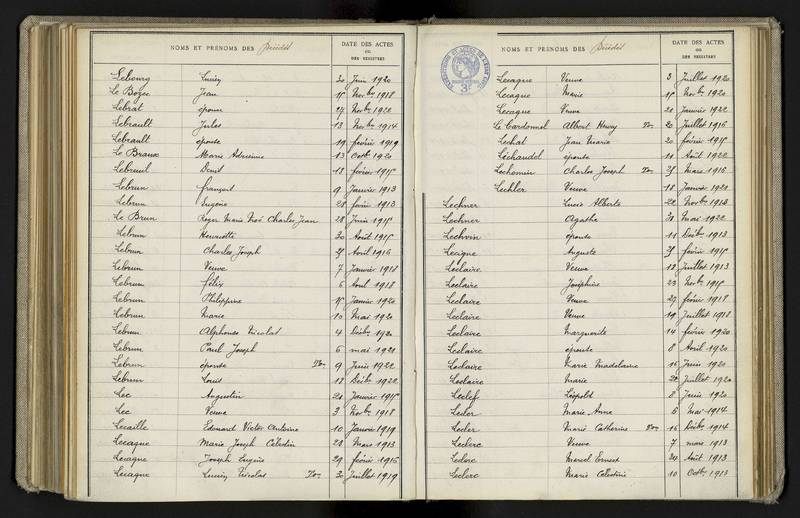 NOMS ET PRÉNOMS DES Décédés
DATE DES ACTES
OU
DES REGISTRES
Lebourg Lucien 30 Juin 1920
Le Bozec Jean Novbre 1918
Lebrat épouse 27 Novbre 1920
Lebrault Jules 13 Novbre 1914
Lebrault épouse 19 février 1919
Le Braux Marie Adrienne 13 Octbre 1920
Lebreuil Denis 18 février 1915
Lebrun françois 9 Janvier 1913
Lebrun Eugène 28 février 1913
Le Brun Roger Marie Noé Charles Jean 28 Juin 1915
Lebrun Henriette 30 Août 1915
Lebrun Charles Joseph 25 Avril 1916
Lebrun Veuve 7 Janvier 1918
Lebrun félix 6 Avril 1918
Lebrun Philippine 15 Janvier 1920
Lebrun Marie 10 Mai 1920
Lebrun Alphonse Nicolas 4 Décbre 1920
Lebrun Paul Joseph 6 mai 1921
Lebrun épouse Don 9 Juin 1922
Lebrun Louis 18 Décbre 1922
Lec Augustin 21 Janvier 1915
Lec Veuve 3 Novbre 1918
Lecaille Edouard Victor Antoine 10 Janvier 1919
Lecaque Marie Joseph Célestin 28 Mars 1913
Lecaque Joseph Eugène 29 février 1916
Lecaque Lucien Nicolas Don 30 Juillet 1919
NOMS ET PRÉNOMS DES Décédés
DATE DES ACTES
OU
DES REGISTRES
Lecaque Veuve 3 Juillet 1920
Lecaque Marie 15 Novbre 1920
Lecaque Veuve 21 Janvier 1922
Le Cardonnel Albert Henry Don 20 Juillet 1916
Lechat Jean Marie 20 février 1915
Léchaudel épouse 11 Août 1922
Lechemin Charles Joseph Don 25 Mars 1916
Lechler Veuve 18 Janvier 1921
Lechner Lucie Alberte 22 Novbre 1913
Lechner Agathe 31 Mai 1922
Lechvin épouse 11 Décbre 1913
Lecigne Auguste 25 février 1915
Leclaire Veuve 12 Juillet 1913
Leclaire Joséphine 23 Novbre 1915
Leclaire Veuve 27 février 1918
Leclaire Veuve 19 Juillet 1918
Leclaire Marguerite 14 février 1920
Leclaire épouse 8 Avril 1920
Leclaire Marie Madelaine 16 Juin 1920
Leclaire Marie 20 Juillet 1920
Leclef Léopold 8 Juin 1920
Lecler Marie Anne 6 Mai 1914
Lecler Marie Catherine Don 16 Décbre 1914
Leclerc Veuve 7 mars 1913
Leclerc Marcel Ernest 29 Août 1913
Leclerc Marie Célestine 10 Octbre 1913